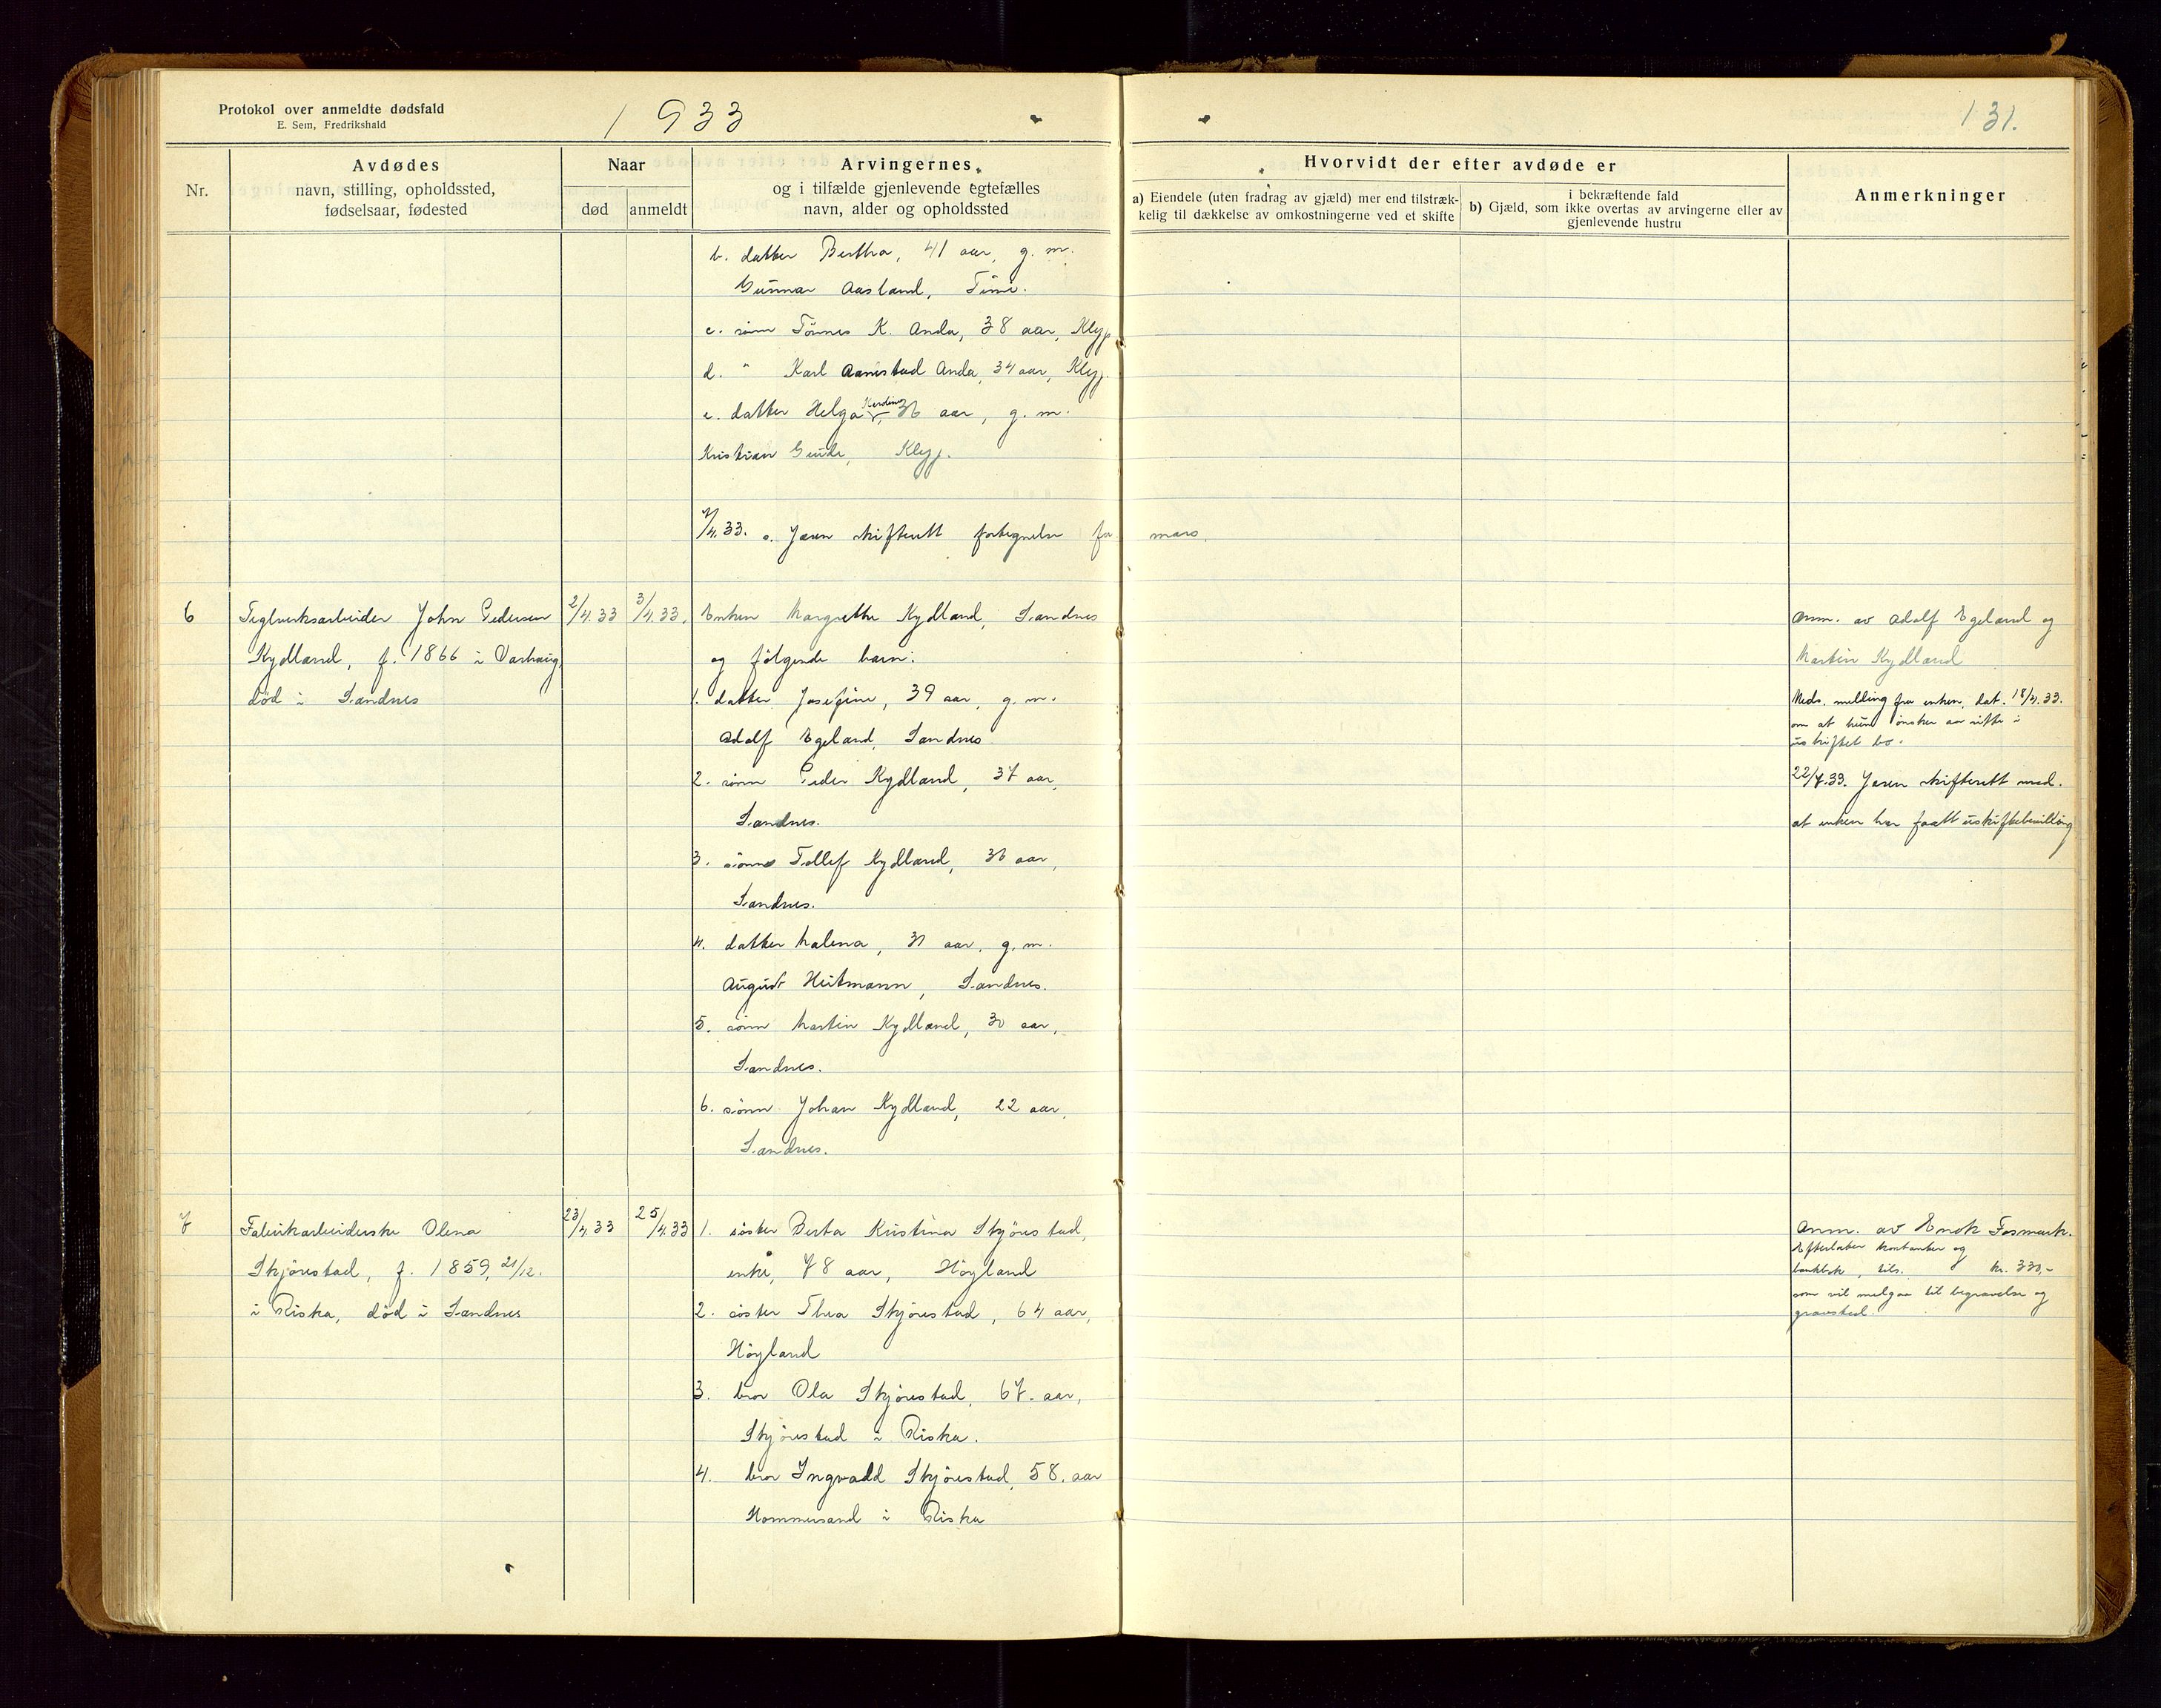 Protokol over anmeldte dødsfald
E. Sem, Fredrikshald
1933
131.
Nr.
Avdødes
navn, stilling, opholdssted,
fødselsaar, fødested
Naar
død
anmeldt
Arvingernes,
og i tilfælde gjenlevende egtefælles
navn, alder og opholdssted
Hvorvidt der efter avdøde er
a) Eiendele (uten fradrag av gjæld) mer end tilstræk-
kelig til dækkelse av omkostningerne ved et skifte
i bekræftende fald
b) Gjæld, som ikke overtas av arvingerne eller av
gjenlevende hustru
Anmerkninger
b. datter Bertha, 41 aar, g. m.
Gunnar Aasland, Time.
c. sønn Tønnes K. Anda, 38 aar, Klep
d. " Karl Aanestad Anda, 34 aar, Klep.
e. datter Helga 36 aar, g. m.
Kristian Klep.
/4.33. s. Jæren skifterett fortegnelse for mars.
6
Teglverksarbeider John Pedersen
Kydland, f. 1866 i Varhaug,
død i Sandnes
2/4.33
3/4.33.
Enken Margrethe Kydland, Sandnes
og følgende barn:
1. datter Josefine, 39 aar, g. m.
Adolf Egeland, Sandnes
2. sønn Peder Kydland, 37 aar,
Sandnes.
3. sønn Tollef Kydland, 36 aar,
Sandnes.
4. datter Malena, 31 aar, g. m.
August Heitmann, Sandnes.
5. sønn Martin Kydland, 30 aar,
Sandnes.
6. sønn Johan Kydland, 22 aar,
Sandnes.
Anm. av Adolf Egeland og
Martin Kydland
Meds. melding fra enken, dat. 18/4.33.
om at hun ønsker aa sitte i
uskiftet bo.
22/7.33. Jæren skifterett med.
at enken har faatt uskiftebevilling
7
Fabrikarbeiderske Olena
Skjørestad, f. 1859, 21/12.
i Riska, død i Sandnes
23/4.33
25/4.33
1. søster Berta Kristina Skjørestad,
enke, 78 aar, Høyland
2. søster Thea Skjørestad, 64 aar,
Høyland
3. bror Ola Skjørestad, 67. aar,
Skjørestad i Riska.
4. bror Ingvald Skjørestad, 58. aar
Hommersand i Riska
Anm. av Enok Fosmark.
Efterlater kontanter og
bankbok, tils. kr. 330,-
som vil medgaa til begravelse og
gravsted.